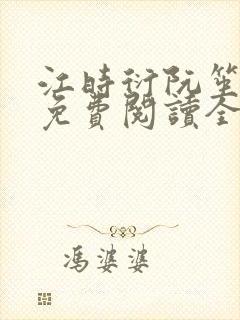 江時衍阮笙
免費閱讀全
馮婆婆